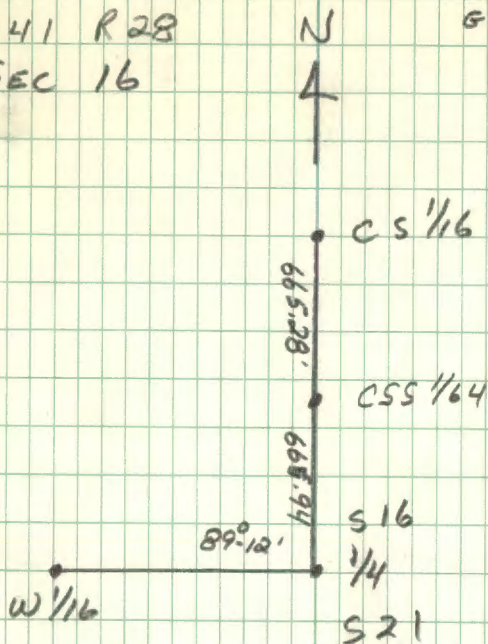 41 R 28
SEC 16
N
G
C S 1/16
665.28'
CSS 1/64
S 16
89°-12'
1/4
W 1/16
S 21